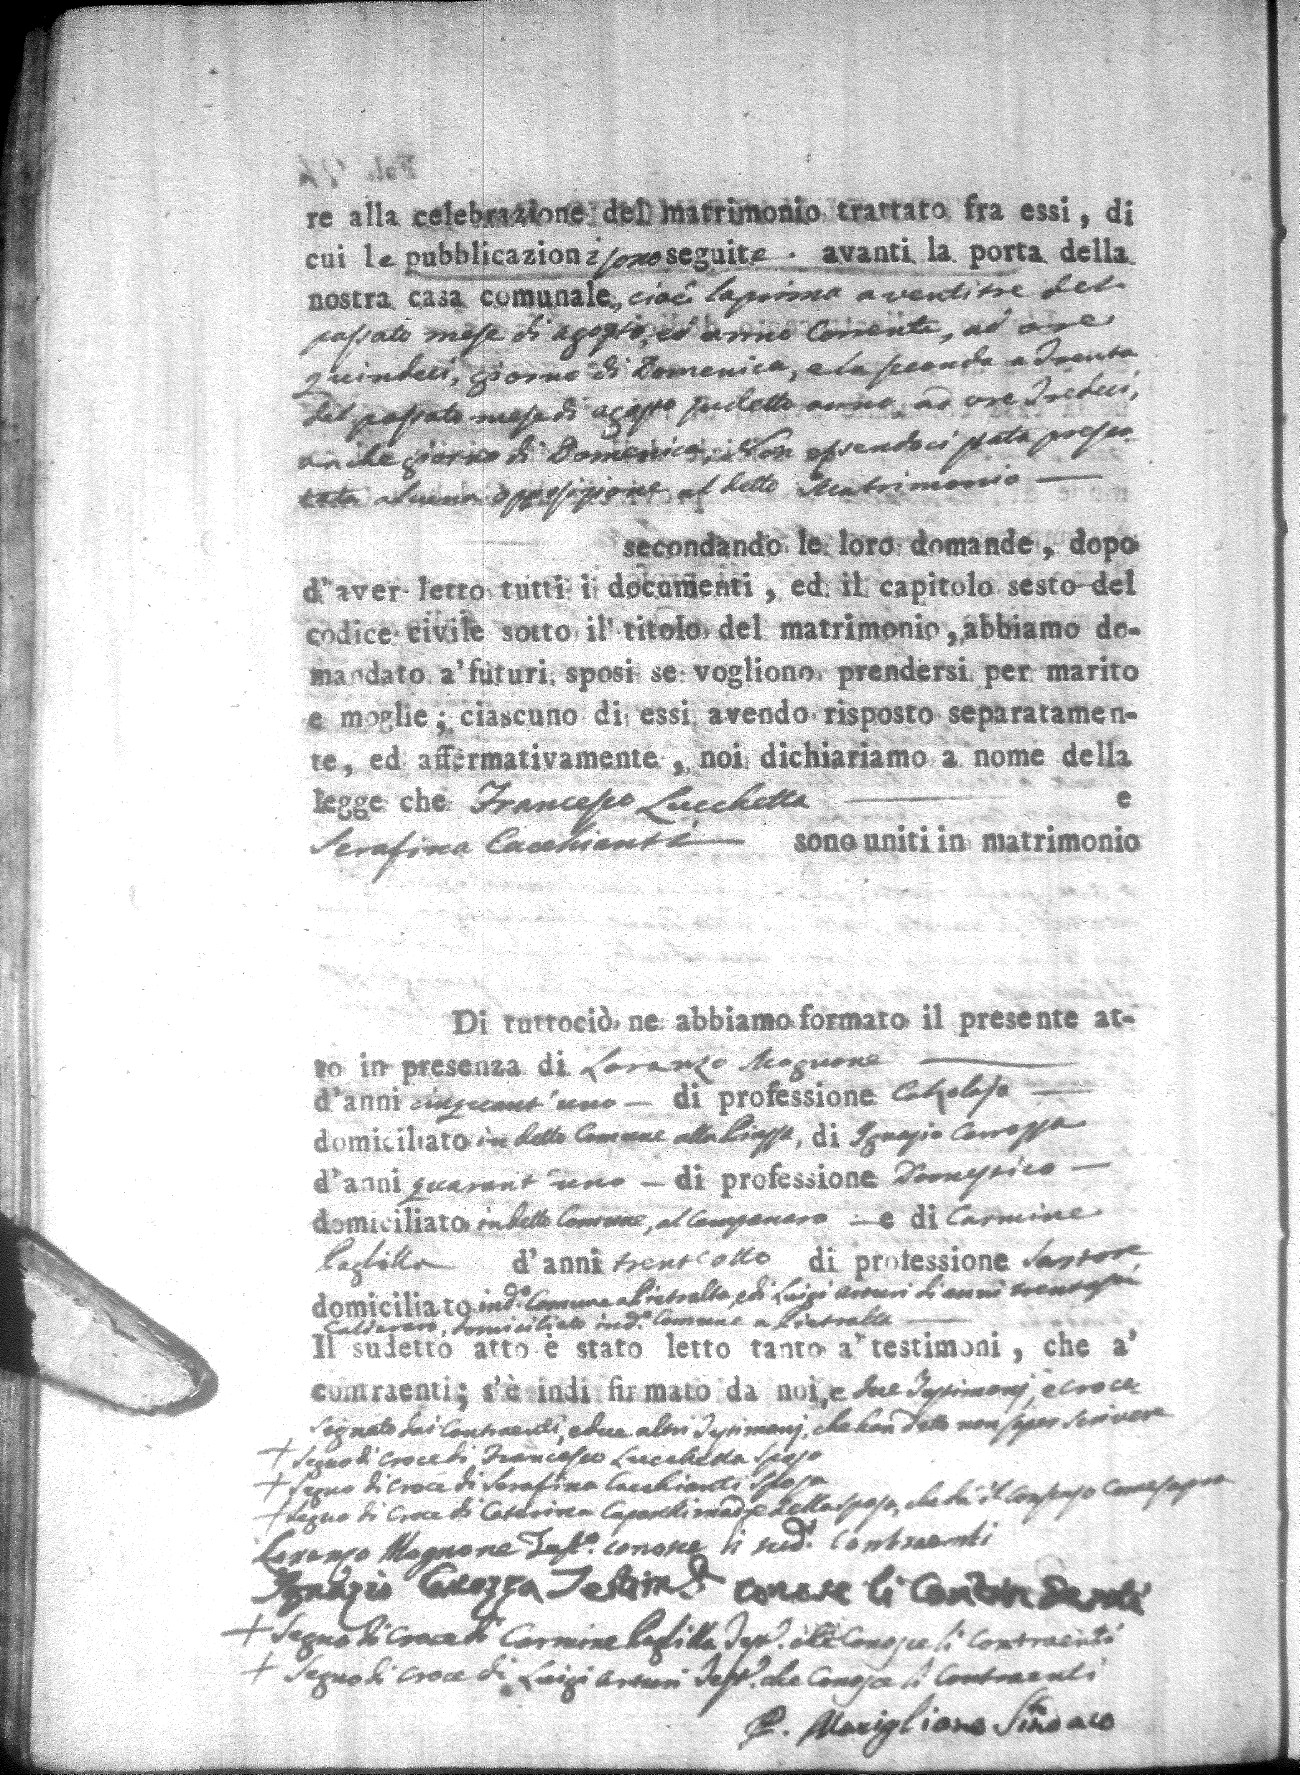 re alla celebrazione del matrimonio trattato fra essi, di
cui le pubblicazioni sono seguite. avanti la porta della
nostra casa comunale, cioè la prima a ventitre del
passato mese di agosto, ed anno corrente, ad ore
quindeci, giorno di Domenica, e la seconda a trenta
del passato mese di agosto sudetto anno, ad ore Tredeci,
anche giorno di Domenica, Non essendoci stata presen
tata alcuna opposizione al detto Matrimonio
secondando le loro domande, dopo
d'aver letto tutti i documenti, ed il capitolo sesto del
codice civile sotto il titolo del matrimonio, abbiamo do-
mandato a' futuri sposi se vogliono prendersi per marito
e moglie; ciascuno di essi avendo risposto separatamen-
te, ed affermativamente, noi dichiariamo a nome della
legge che Francesco Lucchetta e
Serafina Cacchianti sono uniti in matrimonio
Di tuttociò ne abbiamo formato il presente at-
to in presenza di Loranzo Magnone
d'anni cinquant'uno di professione Calzolajo
domiciliato in detto Comune alla Piazza, di Ignazio Carozza
d'anni quarant'uno di professione Domestico
domiciliato in detto Comune, al Campanaro e di Carmine
d'anni trent'otto di professione Sartore
domiciliato in d.º Comune a Pietralta, e di Luigi Arturi di anni trentasei
Caldararo, domiciliato in d.º Comune a Pietralta
Il sudetto atto è stato letto tanto a' testimoni, che a'
contraenti; s'è indi firmato da noi, e due Testimonj, e croce
segnato dai Contraenti, e due altri Testimonj, che han detto non saper scrivere
+ Segno di croce di Francesco Lucchetta sposo
+ Segno di croce di Serafina Cacchianti Sposa
+ Segno di Croce di Caterina madre della sposa, che dà il
Loranzo Magnone Test.º conosce li sud.i Contraenti
Ignazio Carozza Testim.º conosce li
+ Segno di Croce di Carmine Test.º che Conosce li contraenti
+ Segno di croce di Luigi Arturi Test.º che Conosce li Contraenti
Marigliano Sindaco